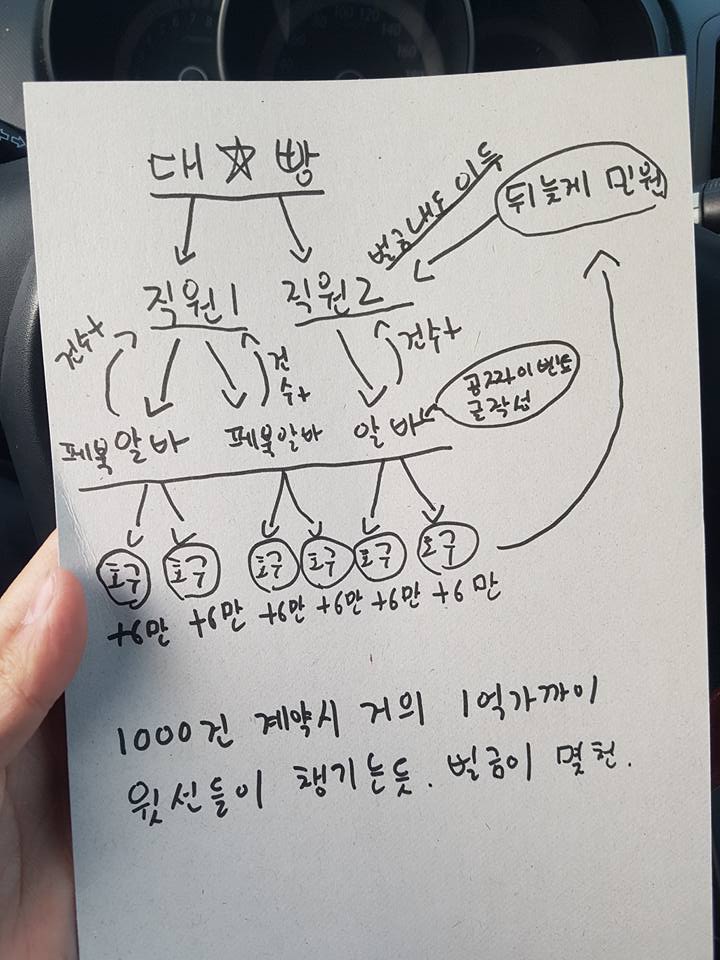 대☆빵
벌금내도 이득
뒤늦게 민원
직원1
직원2
건수+
건수+
건수+
페북알바
페북알바
알바
공짜이벤트
글작성
호구
호구
호구
호구
호구
호구
+6만
+6만
+6만
+6만
+6만
+6만
1000건 계약시 거의 1억가까이
윗선들이 챙기는듯. 벌금이 몇천.